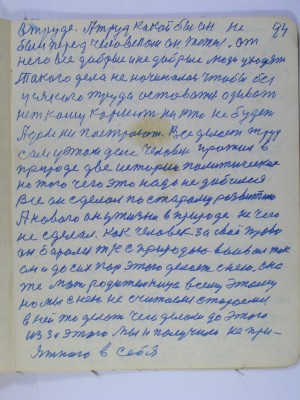 в труде. А труд какой бы он не 94
был перед человеком он
него все добрые и не добрые люди уходят
Такого дела не начиналось чтобы без
всякого труда остовать одевать
нет кому кормить никто не будет
А дом ни построють. Все делает труд
самим на деле Человек прожил в
природе две истории политическая
но того чего это надо не добился
Все он сделал по старому развитию
А нового он у жизни в природе ни чего
не сделал. Как человек за своё тново
он боролся с природою воевал так
он и до сих пор этого делает с нею, она
же мать родительница всему этому
но мы с нею не считаемся стараемся
в ней то делать чего делали до этого
из за этого мы и получили не при-
ятного в себя